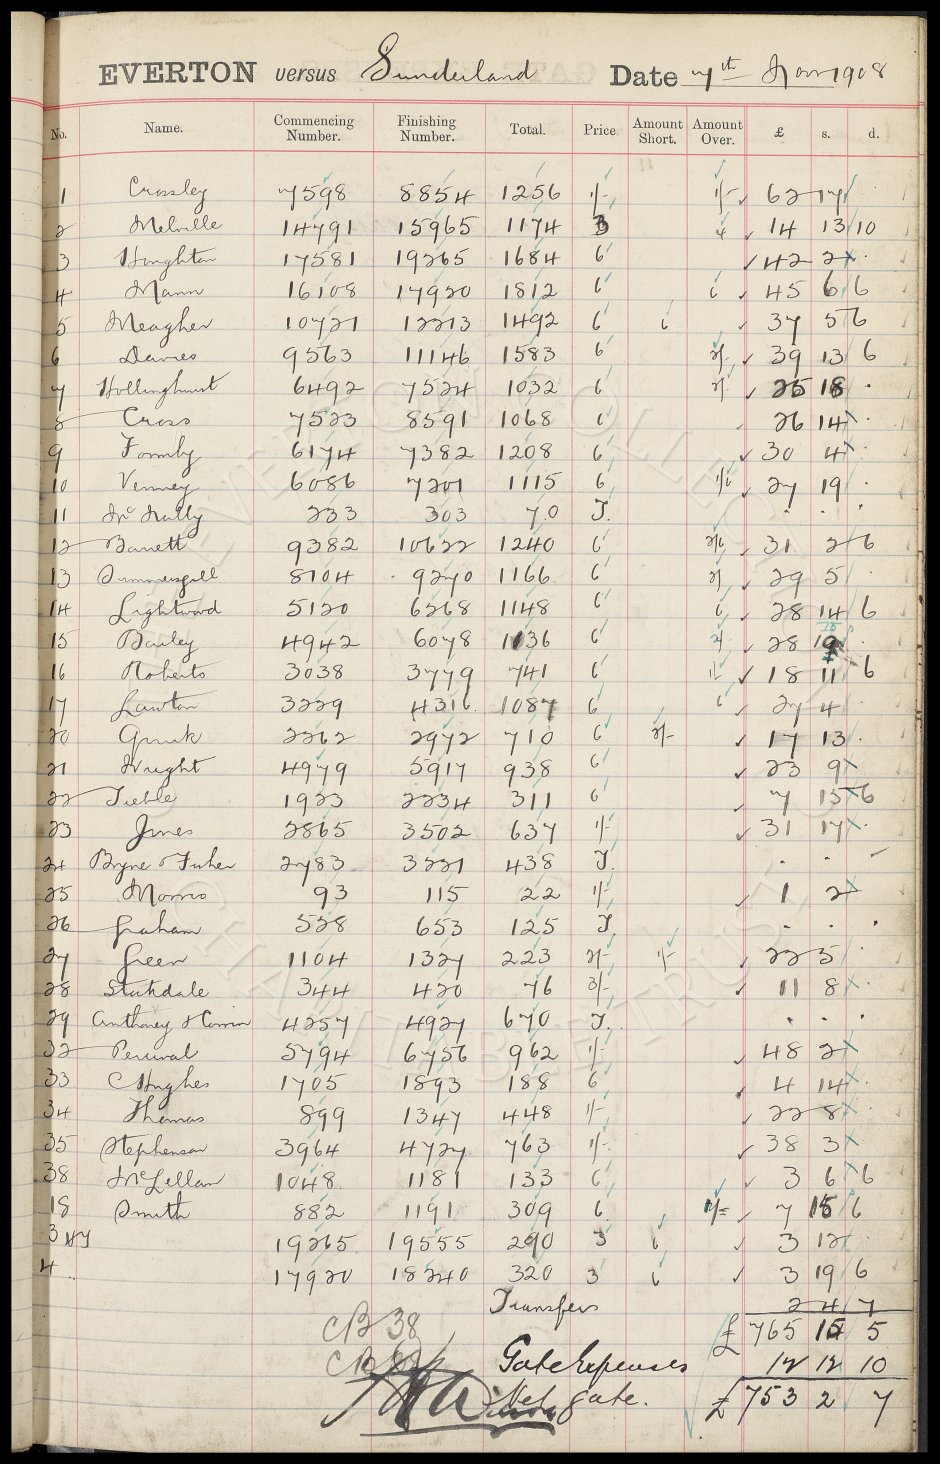 EVERTON versus Sunderland Date 7th Nov 1908
No. Name. Commencing Number. Finishing Number. Total. Price. Amount Short. Amount Over. £ s. d.
1 Crossley 7598 8854 1256 1/- 1/- 62 17
2 Melville 14791 15965 1174 3 4 14 13 10
3 Houghton 17581 19265 1684 6 42 2
4 Mann 16108 17920 1812 6 6 45 6 6
5 Meagher 10721 12213 1492 6 6 37 5 6
6 Davies 9563 11146 1583 6 2/- 39 13 6
7 Hollinghurst 6492 7524 1032 6 2/ 25 18
8 Cross 7523 8591 1068 6 26 14
9 Formby 6174 7382 1208 6 30 4
10 Venney 6086 7201 1115 6 1/6 27 19
11 McNally 233 303 70 T.
12 Barrett 9382 10622 1240 6 2/6 31 2 6
13 Summersgill 8104 9270 1166 6 2/ 29 5
14 Lightwood 5120 6268 1148 6 6 28 14 6
15 Bailey 4942 6078 1136 6 2/ 28
16 Roberts 3038 3779 741 6 1/- 18 11 6
17 Lawton 3229 4316 1087 6 6 27 4
20 2262 2972 710 6 2/- 17 13
21 Wright 4979 5917 938 6 23 9
22 1923 2234 311 6 7 15 6
23 Jones 2865 3502 637 1/- 31 17
24 Bryne & Fisher 2783 3221 438 T.
25 Morris 93 115 22 1/- 1 2
26 Graham 528 653 125 T.
27 Green 1104 1327 223 2/- 1/- 22 5
28 Stockdale 344 420 76 3/- 11 8
29 Anthoney & 4257 4927 670 T.
32 Percival 5794 6756 962 1/- 48 2
33 C Hughes 1705 1893 188 6 4 14
34 Thomas 899 1347 448 1/- 22 8
35 Stephenson 3964 4727 763 1/- 38 3
38 McLellan 1048 1181 133 6 3 6 6
18 Smith 882 1191 309 6 7 15 6
3 19265 19555 290 3 6 3 12
4 17920 18240 320 3 6 3 19 6
Transfers 2 4 7
CB 38 £ 765 15 5
CB Gate Expenses 12 12 10
Net gate. £ 753 2 7